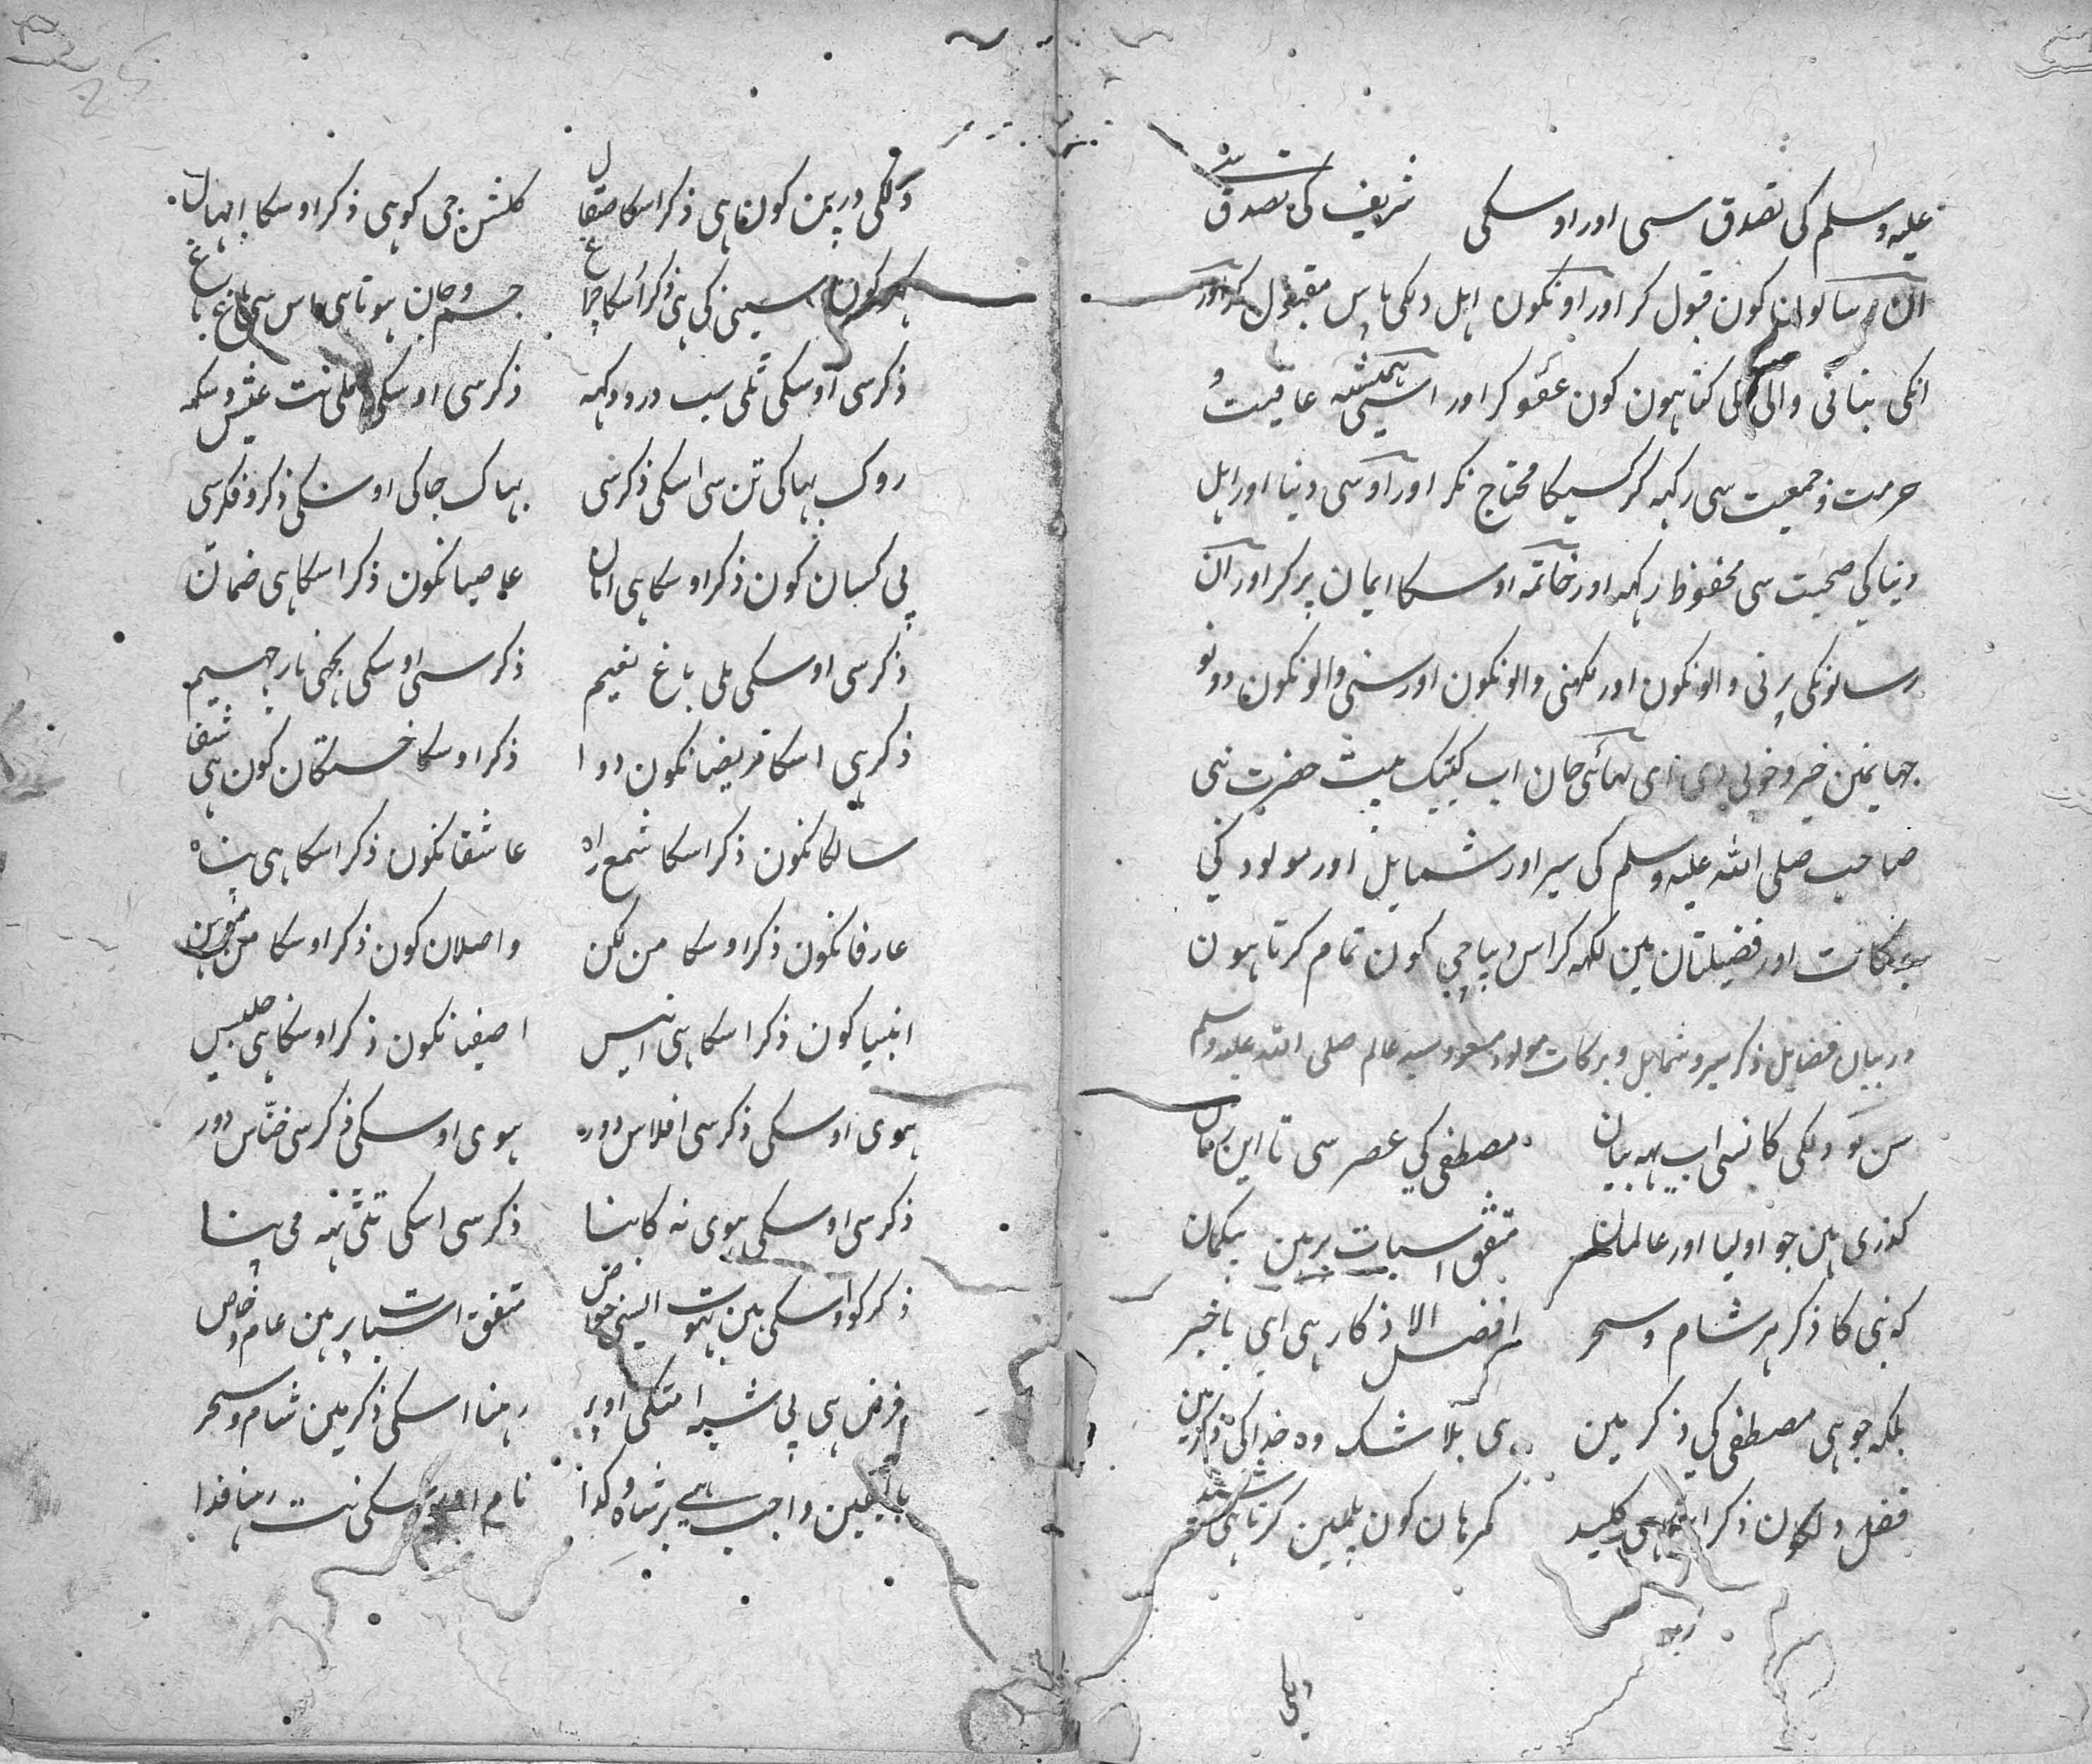 علیه وسلم کی تصدق سی اور اوسکی شریف کی تصدق
ان رسالوان کون قبول کر اور اونکون اہل دلکی پاس مقبول کر اور
انکی بنانی والی کی کناہون کون عفو کر اور اسی ہمیشہ عافیت و
حرمت و جمعیت سی رکہہ کر کسیکا محتاج نکر اور اوسی دنیا اور اہل
دنیا کی صحبت سی محفوظ رکہہ اور خاتمہ اوسکا ایمان پر کر اور ان
رسالونکی پرنی والونکون اور لکہنی والونکون اور سننی والونکون دونو
جہانمین خیر و خوبی دی ای بہائی جان اب کیتیک بیت حضرت نبی
صاحب صلی الله علیه وسلم کی سیر اور شمایل اور مولود کی
برکات اور فضیلتان مین لکہہ کر اس دیباچی کون تمام کرتا ہون
در بیان فضایل ذکر سیر و شمایل و برکات مولود مسعود سید عالم صلی الله علیه وسلم
سن تو دلکی کان سی اب یہہ بیان مصطفی کی عصر سی تا این زمان
کذری ہین جو اولیا اور عالمان متفق اسبات پر ہین بیکمان
که نبی کا ذکر ہر شام و سحر افضل الاذکار ہی ای باخبر
بلکہ جو ہی مصطفی کی ذکر مین ہی بلا شک وہ خدا کی ذکر مین
قفل دلکون ذکر اسکا ہی کلید کمرہان کون پلمین کرتا ہی رشید
دلکی
دلکی درپن کون ہی ذکر اسکا صقال کلشن جی کو ہی ذکر اوسکا نہال
کہر کون سینی کی ہی ذکر اسکا چراغ جسم و جان ہوتا ہی اس سی باغ باغ
ذکر سی اوسکی ٹلی سب درد و دکہہ ذکر سی اوسکی ملی نت عیش و سکہہ
روک بہاکی تن سی اسکی ذکر سی بہاک جاکی اوسکی ذکر و فکر سی
بی کسان کون ذکر اوسکا ہی امان عاصیانکون ذکر اسکا ہی ضمان
ذکر سی اوسکی ملی باغ نعیم ذکر سی اوسکی بجہی نار جحیم
ذکر ہی اسکا مریضانکون دوا ذکر اوسکا خستکان کون ہی شفا
سالکانکون ذکر اسکا شمع راہ عاشقانکون ذکر اسکا ہی پناہ
عارفانکون ذکر اوسکا من لکن واصلان کون ذکر اوسکا من
انبیا کون ذکر اسکا ہی انیس اصفیانکون ذکر اوسکا ہی جلیس
ہوی اوسکی ذکر سی افلاس دور ہوی اوسکی ذکر سی خناس دور
ذکر سی اوسکی ہوی نه کا بنا ذکر سی اسکی
ذکر کو اوسکی ہین بہوت ایسی خواص متفق اسبات پر ہین عام و خاص
فرض ہی بی شبہ امتکی اوپر رہنا اسکی ذکر مین شام و سحر
بالیقین واجب ہی بر شاہ و کدا نام اوپر اوسکی نت رہنا فدا